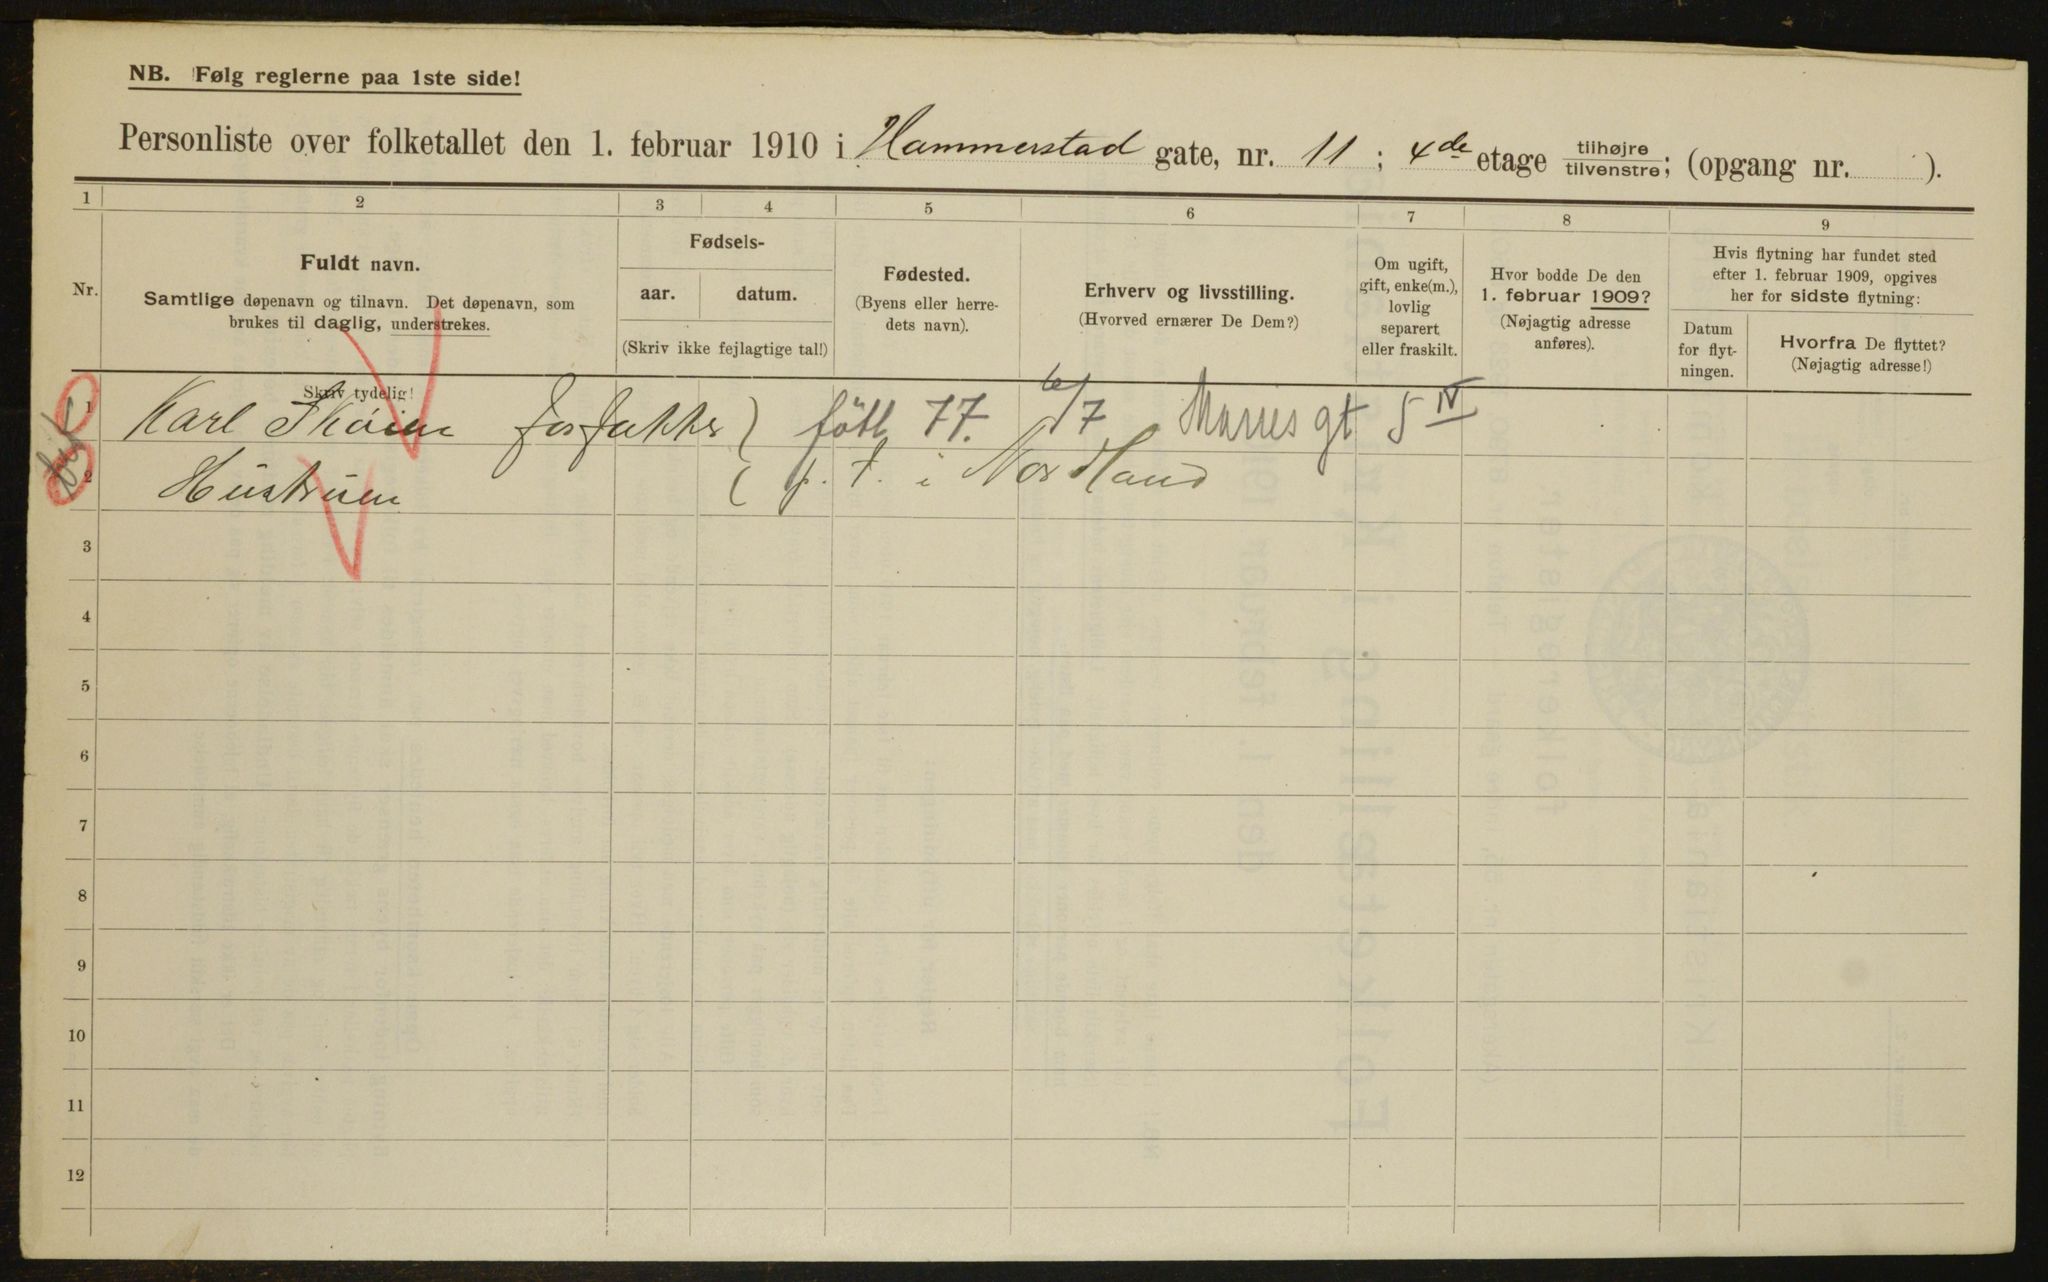 NB. Følg reglerne paa 1ste side!
Personliste over folketallet den 1. februar 1910 i Hammerstad gate, nr. 11; 4de etage tilhøjre / tilvenstre; (opgang nr. ).
1 2 3 4 5 6 7 8 9
Nr.
Fuldt navn.
Samtlige døpenavn og tilnavn. Det døpenavn, som
brukes til daglig, understrekes.
Skriv tydelig!
Fødsels-
aar. datum.
(Skriv ikke fejlagtige tal!)
Fødested.
(Byens eller herre-
dets navn).
Erhverv og livsstilling.
(Hvorved ernærer De Dem?)
Om ugift,
gift, enke(m.),
lovlig
separert
eller fraskilt.
Hvor bodde De den
1. februar 1909?
(Nøjagtig adresse
anføres).
Hvis flytning har fundet sted
efter 1. februar 1909, opgives
her for sidste flytning:
Datum
for flyt-
ningen.
Hvorfra De flyttet?
(Nøjagtig adresse!)
1 Karl Skøien født 77. 6/7 gt 5 IV
2 Hustruen p. t. i Nordland
3
4
5
6
7
8
9
10
11
12